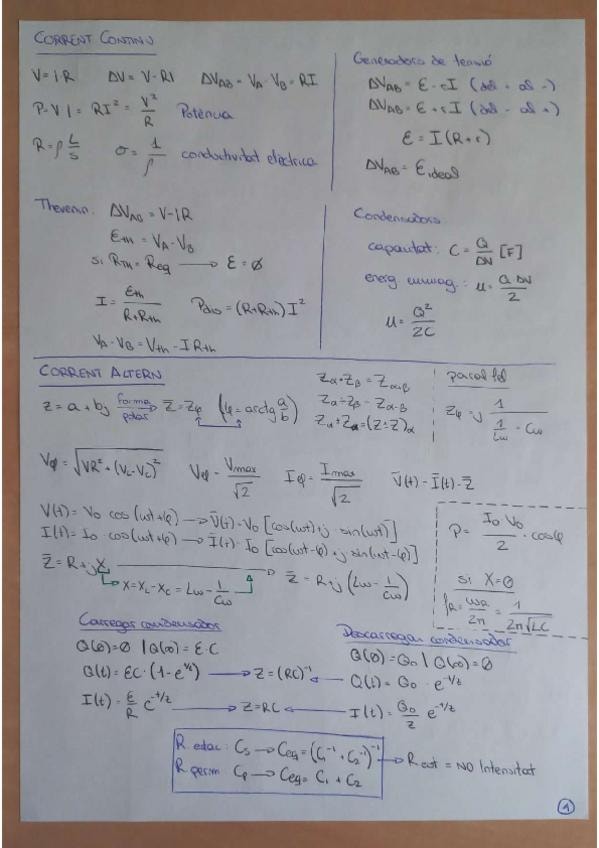 CORRENT CONTINU
V = I R    ΔV = V - RI    ΔV_AB = V_A - V_B = RI
P = V I = RI² = V²/R    Potència
R = ρ L/S    σ = 1/ρ    conductivitat elèctrica
Generadors de tensió
ΔV_AB = ε - rI (del + al -)
ΔV_AB = ε + rI (del - al +)
ε = I (R + r)
ΔV_AB = ε ideal
Thevenin: ΔV_AB = V - IR
ε_th = V_A - V_B
Si R_TH = R_eq → ε = Ø
I = ε_th / (R + R_th)    P_dis = (R + R_th) I²
V_A - V_B = V_th - I R_th
Condensadors
capacitat: C = Q/ΔV [F]
energ. emmag.: u = Q ΔV / 2
u = Q² / 2C
CORRENT ALTERN
z = a + bj forma polar → z̄ = Z_φ (φ = arctg a/b)
Z_α + Z_β = Z_α+β
Z_α ÷ Z_β = Z_α-β
Z_α ± Z_α = (Z ± Z)_α
paral·lel
Z_φ = j 1 / (1/Lω - Cω)
V_ef = √(VR² + (V_L - V_C)²)    V_ef = V_max/√2    I_ef = I_max/√2    V̄(t) = Ī(t) · Z̄
V(t) = V₀ cos(ωt + φ) → V̄(t) = V₀ [cos(ωt) + j · sin(ωt)]
I(t) = I₀ · cos(ωt + φ) → Ī(t) = I₀ [cos(ωt - φ) + j · sin(ωt - φ)]
Z̄ = R + jX → Z̄ = R + j (Lω - 1/Cω)
X = X_L - X_C = Lω - 1/Cω
P = I₀ V₀ / 2 · cosφ
si X = 0
f_R = ω_R/2π = 1/(2π√LC)
Carregar condensador
Q(0) = 0 | Q(∞) = ε·C
Q(t) = εC·(1 - e^-t/z) → Z = (RC)⁻¹
I(t) = ε/R e^-t/z → Z = RC
Descarregar condensador
Q(0) = Q₀ | Q(∞) = Ø
Q(t) = Q₀ · e^-t/z
I(t) = Q₀/z e^-t/z
R. edac: C_s → C_eq = (C₁⁻¹ + C₂⁻¹)⁻¹
R. perim: C_p → C_eq = C₁ + C₂
→ R ext = NO Intensitat
1